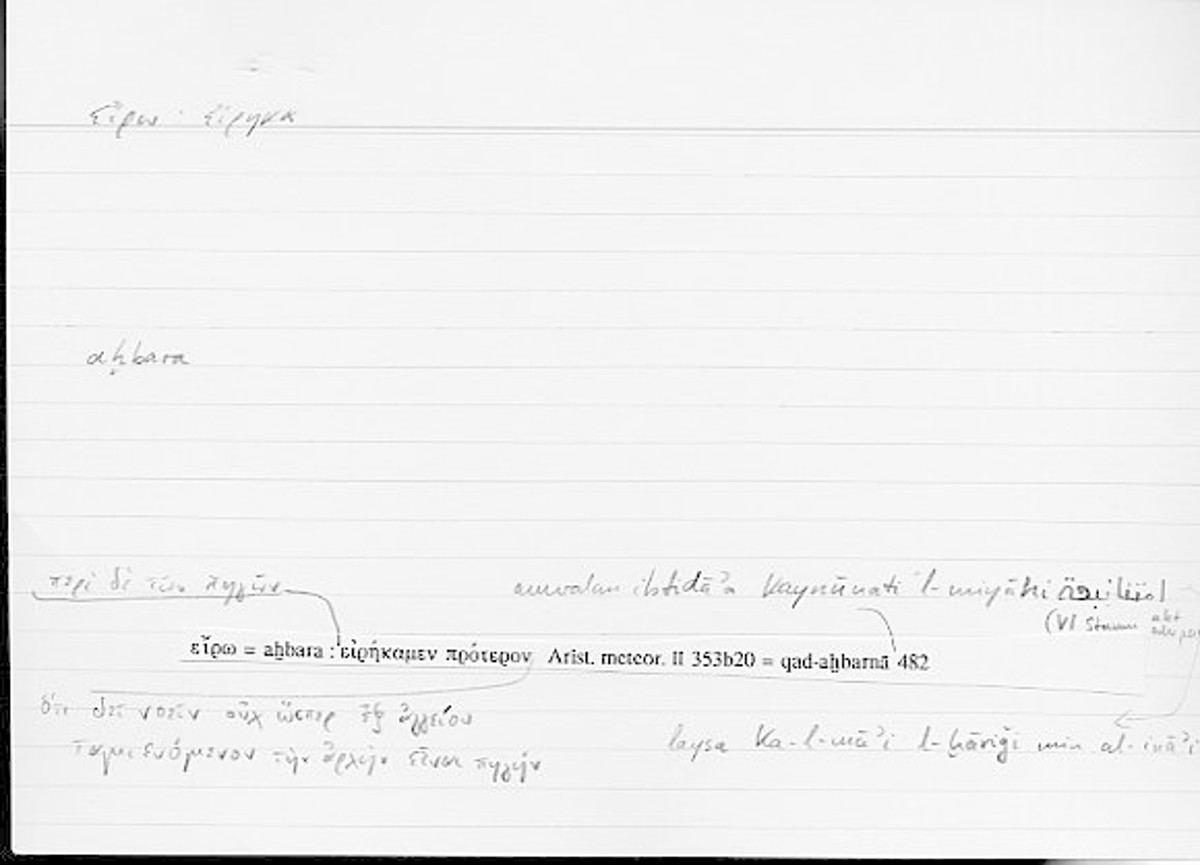 εἴρω · εἴρηκα
aḫbara
περὶ δὲ τῶν πηγῶν
awwalan ibtidāʾa kaynūnati l-miyāhi
(VI Stamm
εἴρω = aḫbara : εἰρήκαμεν πρότερον Arist. meteor. II 353b20 = qad-aḫbarnā 482
ὅτι δεῖ νοεῖν οὐχ ὥσπερ ἐξ ἀγγείου
laysa ka-l-māʾi l-ḫāriǧi min al-ināʾi
ταμιευόμενον τὴν ἀρχὴν εἶναι πηγήν